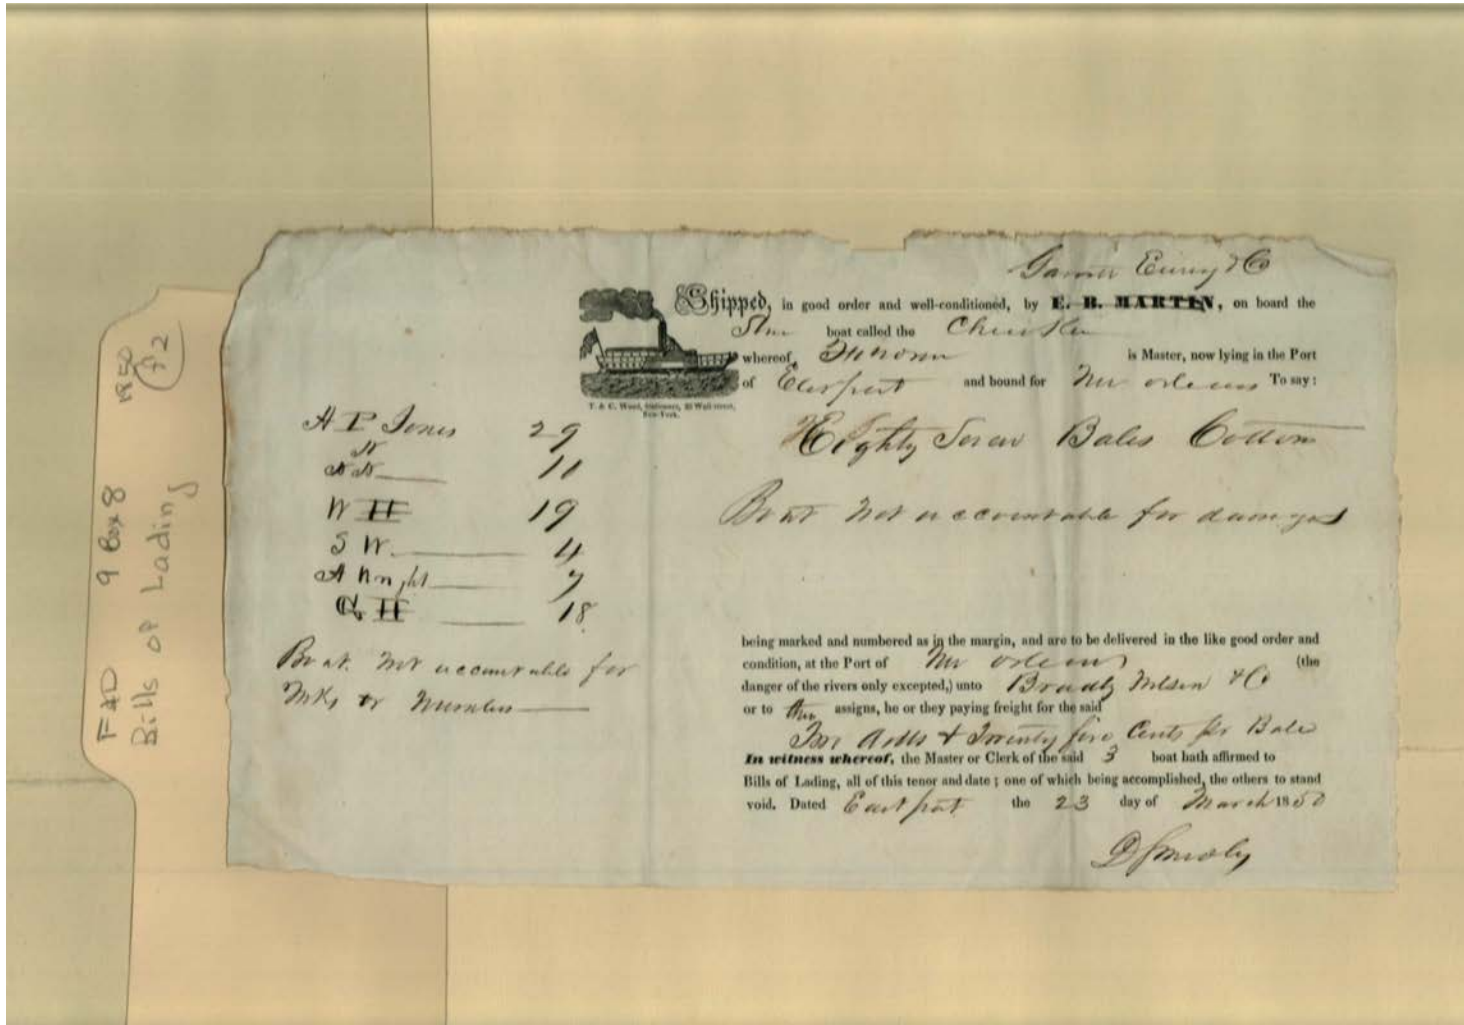 1850
f2
F&D 9 Box 8
Bills of Lading
& Co
Shipped, in good order and well-conditioned, by E. B. MARTIN, on board the
boat called the
whereof is Master, now lying in the Port
of and bound for New orleans To say:
T. & C. Wood, Stationers, Wall street,
New-York.
Eighty Seven Bales Cotton
Boat not accountable for damages
A P Jones 29
11
W H 19
S W. 4
A Wright 7
H 18
Boat not accountable for
Mks or Numbers
being marked and numbered as in the margin, and are to be delivered in the like good order and
condition, at the Port of New orleans (the
danger of the rivers only excepted,) unto Bradly Wilson & Co
or to assigns, he or they paying freight for the said
& Twenty five Cents pr Bale
In witness whereof, the Master or Clerk of the said 3 boat hath affirmed to
Bills of Lading, all of this tenor and date; one of which being accomplished, the others to stand
void. Dated Eastport the 23 day of March 1850